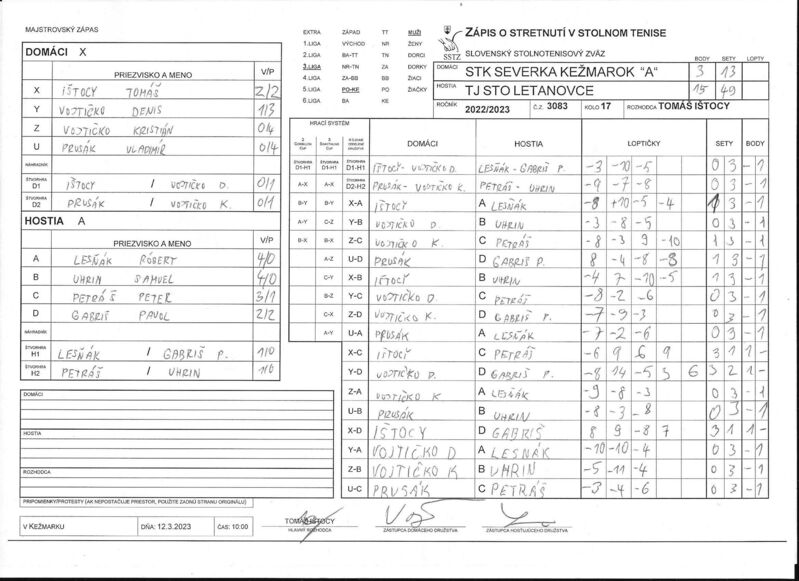 MAJSTROVSKÝ ZÁPAS
DOMÁCI X
PRIEZVISKO A MENO V/P
X IŠTOCY TOMÁŠ 2/2
Y VOJTIČKO DENIS 1/3
Z VOJTIČKO KRISTIÁN 0/4
U PRUSÁK VLADIMÍR 0/4
NÁHRADNÍK
ŠTVORHRA D1 IŠTOCY / VOJTIČKO D. 0/1
ŠTVORHRA D2 PRUSÁK / VOJTIČKO K. 0/1
HOSTIA A
PRIEZVISKO A MENO V/P
A LESŇÁK RÓBERT 4/0
B UHRIN SAMUEL 4/0
C PETRÁŠ PETER 3/1
D GABRIŠ PAVOL 2/2
NÁHRADNÍK
ŠTVORHRA H1 LESŇÁK / GABRIŠ P. 1/0
ŠTVORHRA H2 PETRÁŠ / UHRIN 1/0
DOMÁCI
HOSTIA
ROZHODCA
PRIPOMIENKY/PROTESTY (AK NEPOSTAČUJE PRIESTOR, POUŽITE ZADNÚ STRANU ORIGINÁLU)
V KEŽMARKU DŇA: 12.3.2023 ČAS: 10:00
EXTRA ZÁPAD TT MUŽI
1.LIGA VÝCHOD NR ŽENY
2.LIGA BA-TT TN DORCI
3.LIGA NR-TN ZA DORKY
4.LIGA ZA-BB BB ŽIACI
5.LIGA PO-KE PO ŽIAČKY
6.LIGA BA KE
SSTZ
ZÁPIS O STRETNUTÍ V STOLNOM TENISE
SLOVENSKÝ STOLNOTENISOVÝ ZVÄZ
BODY SETY LOPTY
DOMÁCI STK SEVERKA KEŽMAROK "A" 3 13
HOSTIA TJ STO LETANOVCE 15 49
ROČNÍK 2022/2023 Č.Z. 3083 KOLO 17 ROZHODCA TOMÁŠ IŠTOCY
HRACÍ SYSTÉM
DOMÁCI HOSTIA LOPTIČKY SETY BODY
ŠTVORHRA D1-H1 ŠTVORHRA D1-H1 ŠTVORHRA D1-H1 IŠTOCY - VOJTIČKO D. LESŇÁK - GABRIŠ P. -3 -10 -5 0 3 - 1
A-X A-X ŠTVORHRA D2-H2 PRUSÁK - VOJTIČKO K. PETRÁŠ - UHRIN -9 -7 -8 0 3 - 1
B-Y B-Y X-A IŠTOCY A LESŇÁK -8 +10 -5 -4 1 3 - 1
A-Y C-Z Y-B VOJTIČKO D. B UHRIN -3 -8 -5 0 3 - 1
B-X B-X Z-C VOJTIČKO K. C PETRÁŠ -8 -3 9 -10 1 3 - 1
A-Z U-D PRUSÁK D GABRIŠ P. 8 -4 -8 -3 1 3 - 1
C-Y X-B IŠTOCY B UHRIN -4 7 -10 -5 1 3 - 1
B-Z Y-C VOJTIČKO D. C PETRÁŠ -8 -2 -6 0 3 - 1
C-X Z-D VOJTIČKO K. D GABRIŠ P. -7 -9 -3 0 3 - 1
A-Y U-A PRUSÁK A LESŇÁK -7 -2 -6 0 3 - 1
X-C IŠTOCY C PETRÁŠ -6 9 6 9 3 1 1 -
Y-D VOJTIČKO D. D GABRIŠ P. -8 14 -5 3 6 3 2 1 -
Z-A VOJTIČKO K A LESŇÁK -9 -8 -3 0 3 - 1
U-B PRUSÁK B UHRIN -8 -3 -8 0 3 - 1
X-D IŠTOCY D GABRIŠ 8 9 -8 7 3 1 1 -
Y-A VOJTIČKO D A LESŇÁK -10 -10 -4 0 3 - 1
Z-B VOJTIČKO K B UHRIN -5 -11 -4 0 3 - 1
U-C PRUSÁK C PETRÁŠ -3 -4 -6 0 3 - 1
TOMÁŠ IŠTOCY
HLAVNÝ ROZHODCA ZÁSTUPCA DOMÁCEHO DRUŽSTVA ZÁSTUPCA HOSŤUJÚCEHO DRUŽSTVA